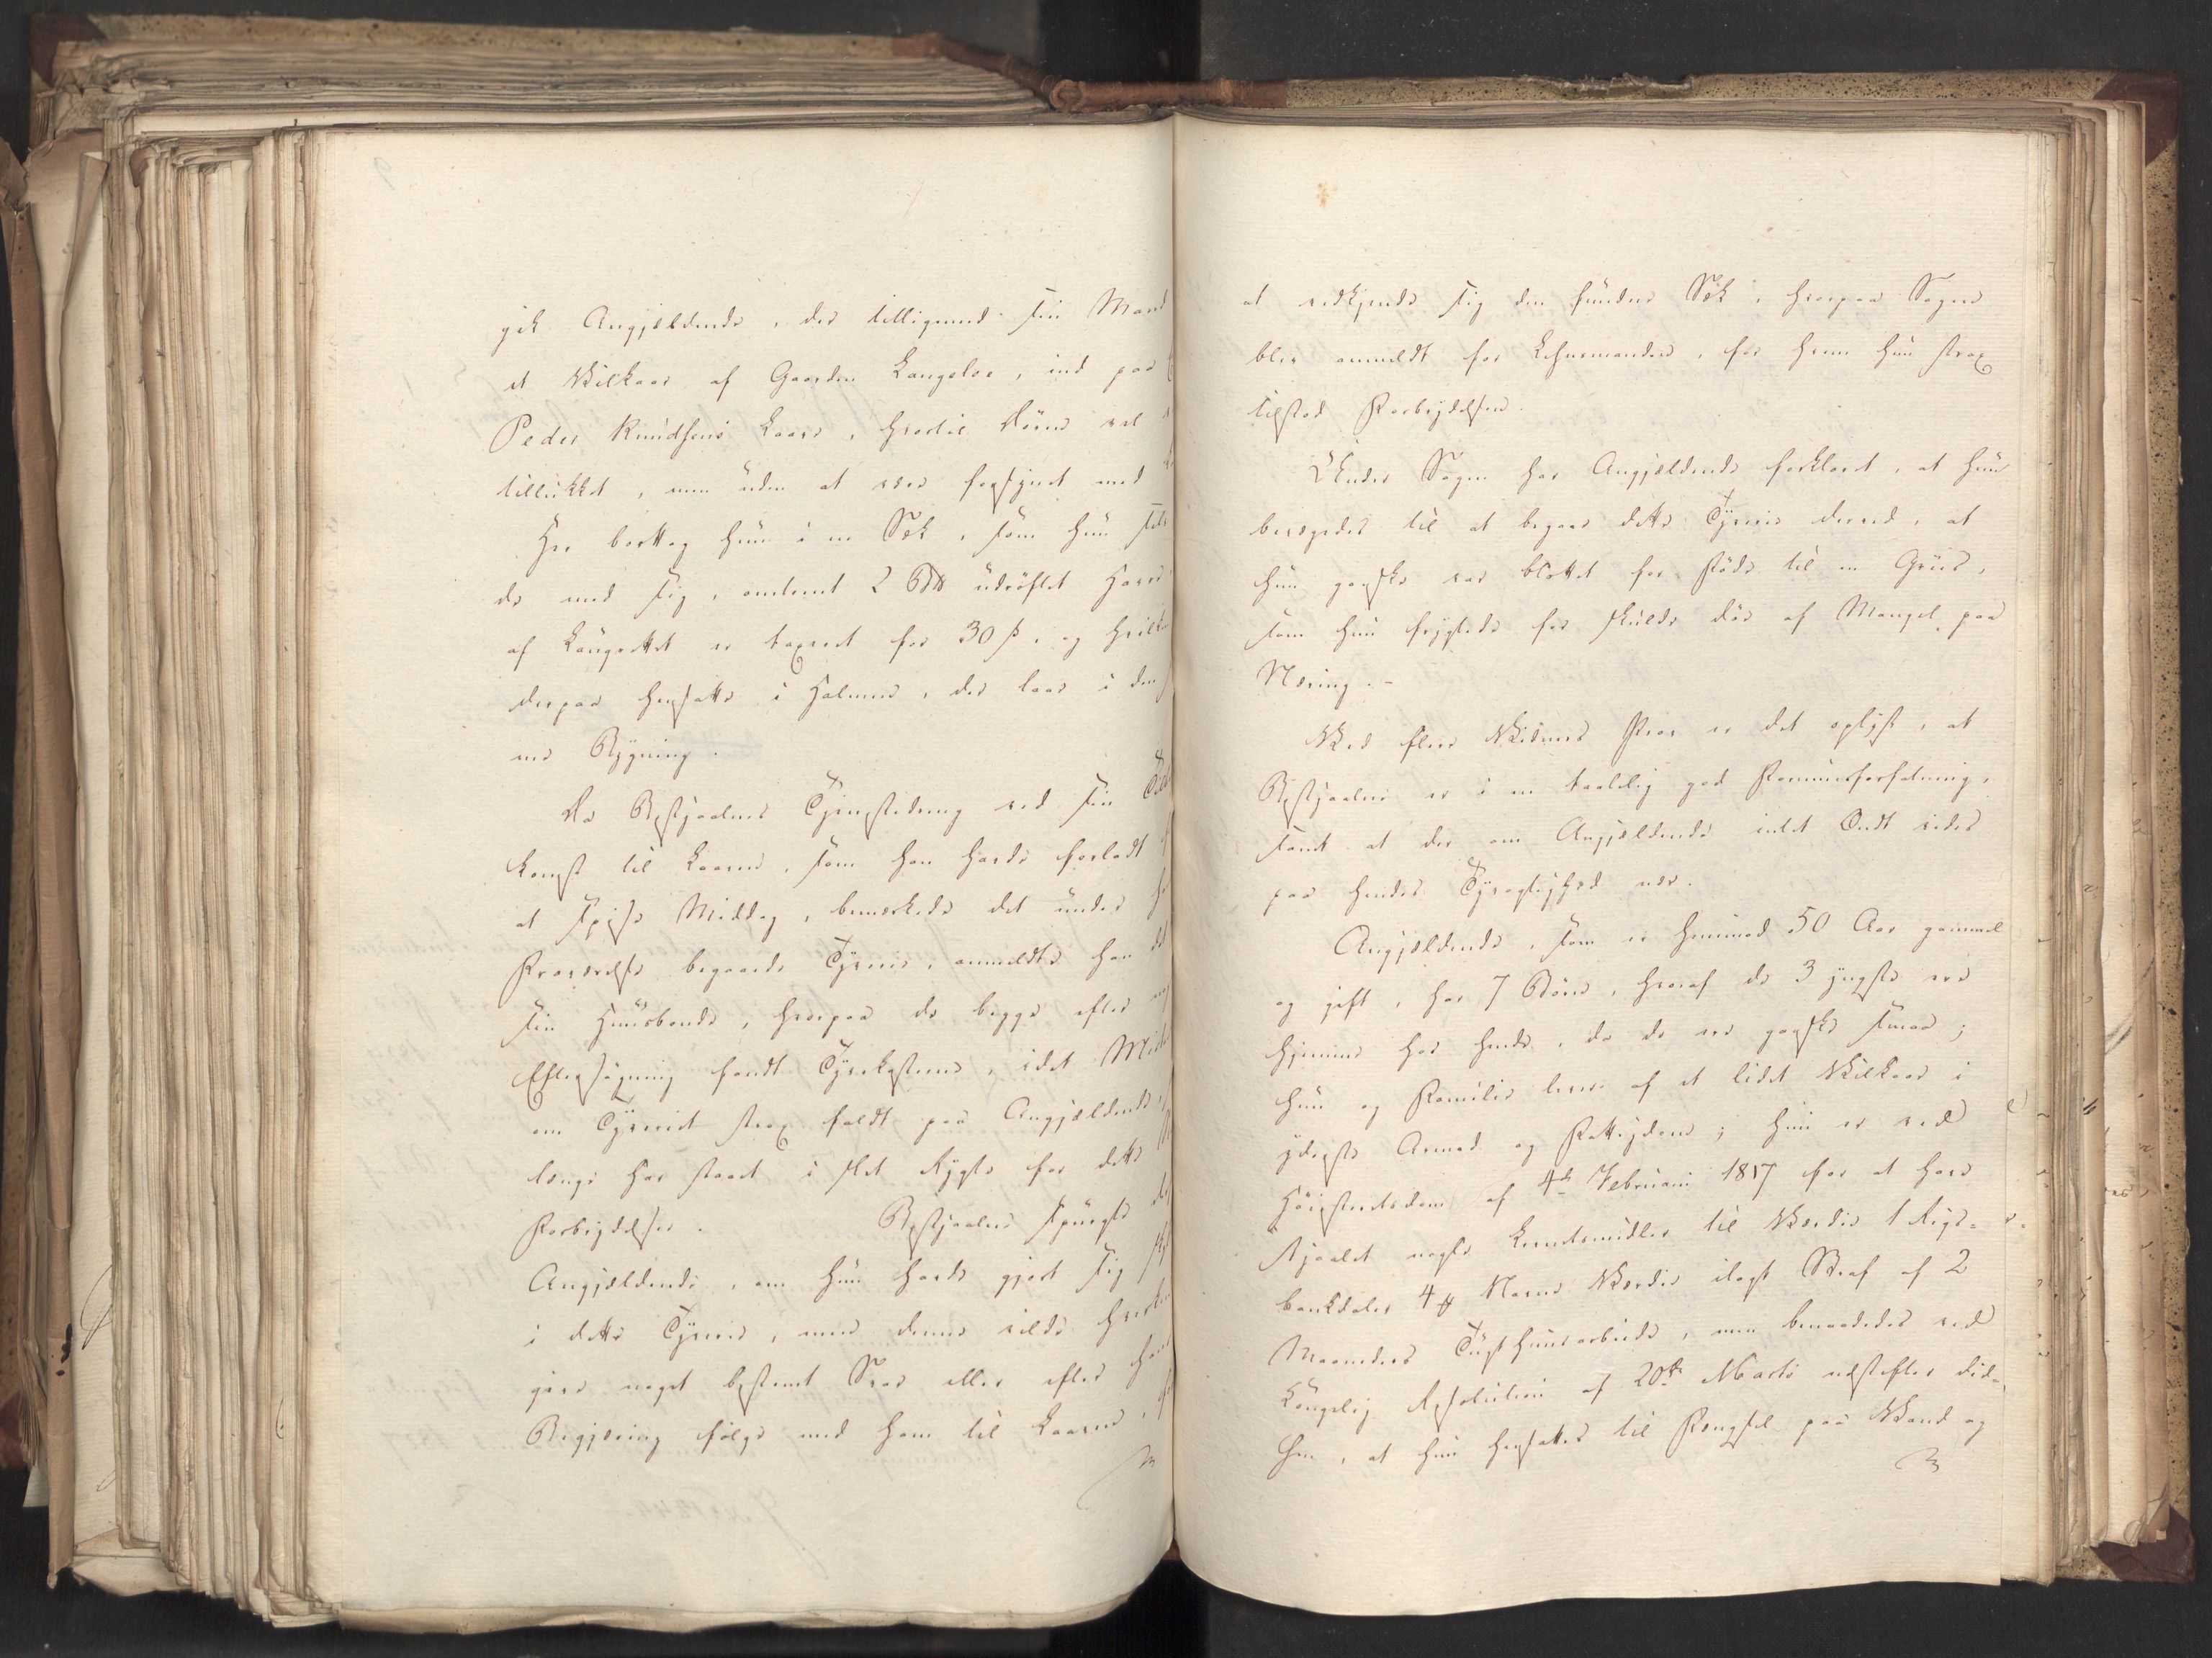 gik Angjældende, der tilligemed sin Mand
et Vilkaar af Gaarden Langeloe, ind paa
Peder Knudsens Laave, hvortil Døren vel
tillukket, men uden at være forsynet med
Her borttog hun i en Sæk, som hun
de med sig, omtrent 2 udrøftet Havre
af Laugrettet er taxeret for 30 ß, og
derpaa hensatte i Halmen, der laae i den
me Bygning.
Da Bestjaalnes Tjenestedreng ved sin
komst til Laaven, som han havde forladt
at spise Middag, bemærkede det under
Fraværelse begaaede Tyverie, anmeldte han
sin Huusbonde, hvorpaa de begge efter
Eftersøgning fandt Tyvekosterne, idet
om Tyveriet strax faldt paa Angjældende,
længe har staaet i slet Rygte for dette
Forbrydelser. Bestjaalne spurgte
Angjældende, om hun havde gjort sig
i dette Tyverie, men denne vilde
give noget bestemt Svar eller efter
Begjæring følge med ham til Laaven,
at vedkjende sig den fundne Sæk, hvorpaa Sagen
blev anmeldt for Lehnsmanden, for hvem hun strax
tilstod Forbrydelsen.
Under Sagen har Angjældende forklaret, at hun
bevægedes til at begaae dette Tyverie derved, at
hun ganske var blottet for Føde til en Griis,
som hun frygtede for skulde døe af Mangel paa
Næring.-
Ved flere Vidners Prov er det oplyst, at
Bestjaalne er i en taalelig god Formuesforfatning,
samt at der om Angjældende intet Ondt vides
paa hendes Tyvagtighed nær.
Angjældende, som er henimod 50 Aar gammel
og gift, har 7 Børn, hvoraf de 3 yngste ere
hjemme hos hende, da de ere ganske smaae;
hun og Familie lever af et lidet Vilkaar i
yderste Armod og Fattigdom; hun er ved
Høiesteretsdom af 4de Februarii 1817 for at have
stjaalet nogle Levnetsmidler til Værdie 1 Rigs-
bankdaler 4 ß Navne Værdie ilagt Straf af 2
Maaneders Tugthuusarbeide, men benaadedes ved
Kongelig Resolution af 20de Martii næstefter der-
hen, at hun hensattes til Fængsel paa Vand og